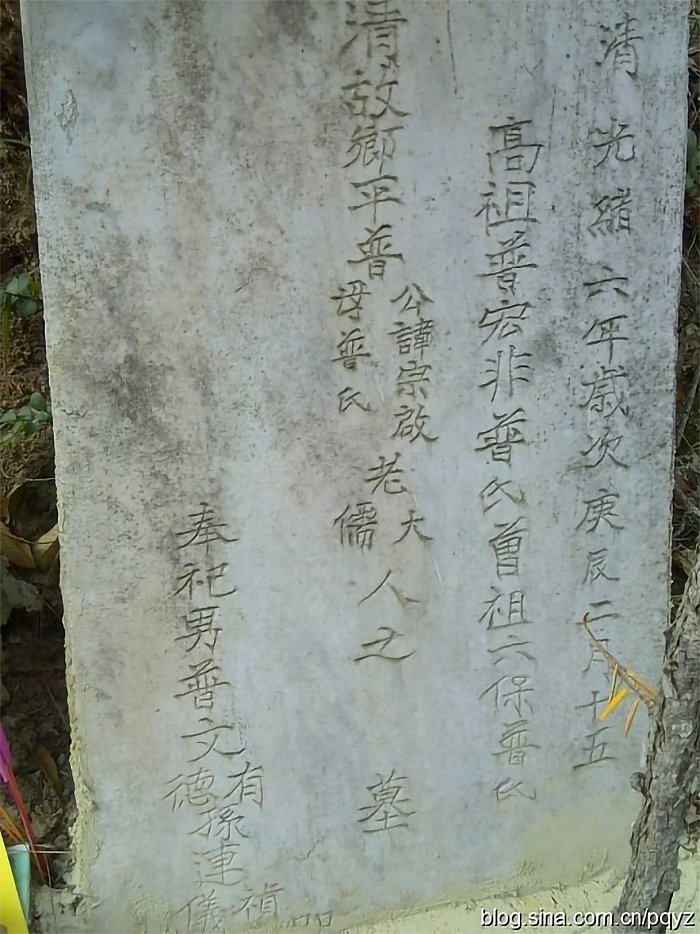 清光緒六年歲次庚辰二月十五
高祖普宏非普氏曾祖六保普氏
清故鄉平普公諱宗啟母普氏老大儒人之墓
奉祀男普文有德孫連禎儀
blog.sina.com.cn/pqyz